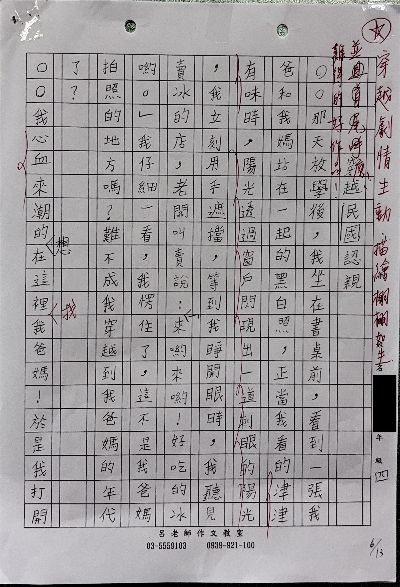 穿越劇情生動描繪栩栩如生
難得的好作品
穿越民國認親
那天放學後，我坐在書桌前，看到一張我
爸和我媽站在一起的黑白照，正當我看的津津
有味時，陽光透過窗戶閃現出一道刺眼的陽光
我立刻用手遮擋，等到我睜開眼時，我聽見
賣冰店，老闆叫賣說：來喲來喲！好吃的冰
喲！」我仔細一看，我愣住了，這不是我爸媽
拍照的地方嗎？難不成我穿越到我爸媽的年代
了？
我心血來潮的想在這裡找我爸媽！於是我打開
年級四
6/13
呂老師作文教室
03-5559103 0939-921-100